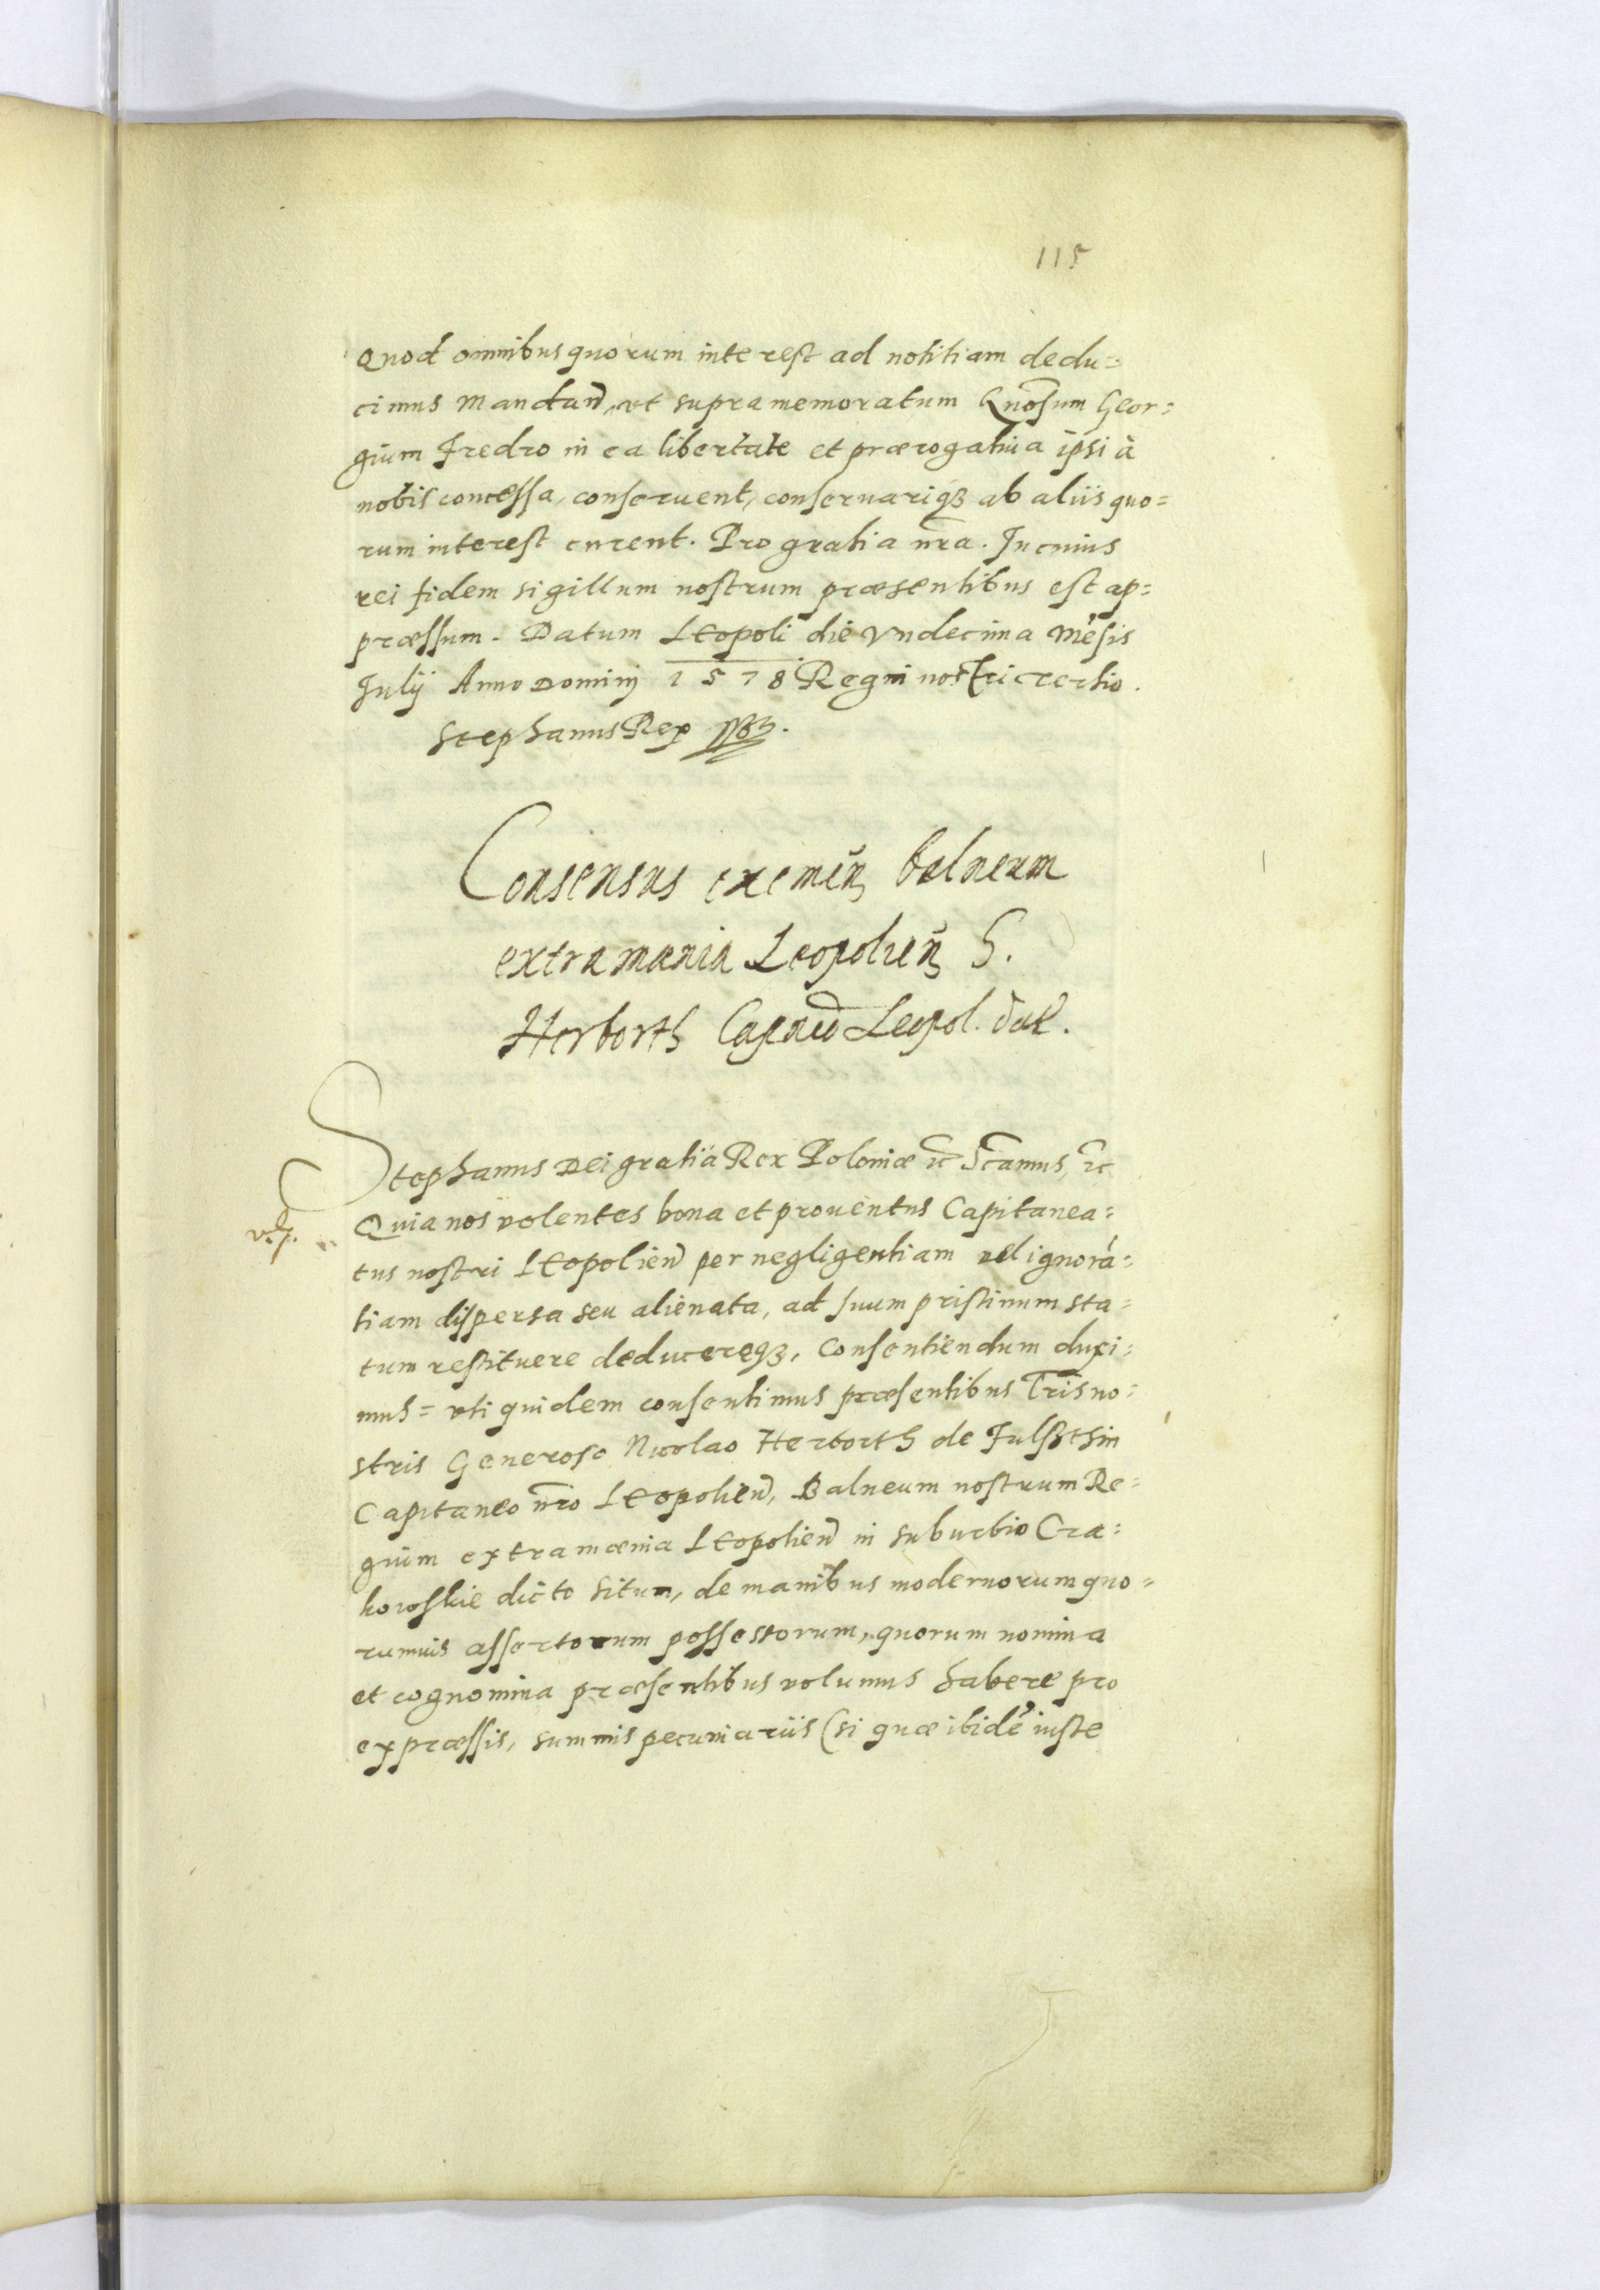 115
Quod omnibus quorum interest ad notitiam dedu=
cimus Mandan̄, vt supra memoratum Gn̄osum Geor=
gium Fredro in ea libertate et prærogatiua ipsi à
nobis concessa, conseruent, conseruariqȝ ab aliis quo=
rum interest curent. Pro gratia nr̄a. In cuius
rei fidem sigillum nostrum præsentibus est ap=
præssum. Datum Leopoli die Vndecima Mēsis
Julij Anno Domini 1578 Regni nostri tertio.
Stephanus Rex
Consensus eximen̄ balneum
extra mænia Leopolien̄ G.
Herborth Capn̄eo Leopol. dat.
Stephanus Dei gratia Rex Poloniæ ꝛc
Quia nos volentes bona et prouentus Capitanea=
tus nostri Leopolien̄ per negligentiam vel ignorā=
tiam dispersa seu alienata, ad suum pristinum sta=
tum restituere deducereqȝ, Consentiendum duxi=
mus= vti quidem consentimus præsentibus Lr̄is no=
stris Generoso Nicolao Herborth de Fulsthin
Capitaneo nr̄o Leopolien̄, Balneum nostrum Re=
gium extra mænia Leopolien̄ in suburbio Cra=
kowskie dicto situm, de manibus modernorum quo=
rumuis assertorum possessorum, quorum nomina
et cognomina præsentibus volumus habere pro
expræssis, summis pecuniariis (si quæ ibidē iuste